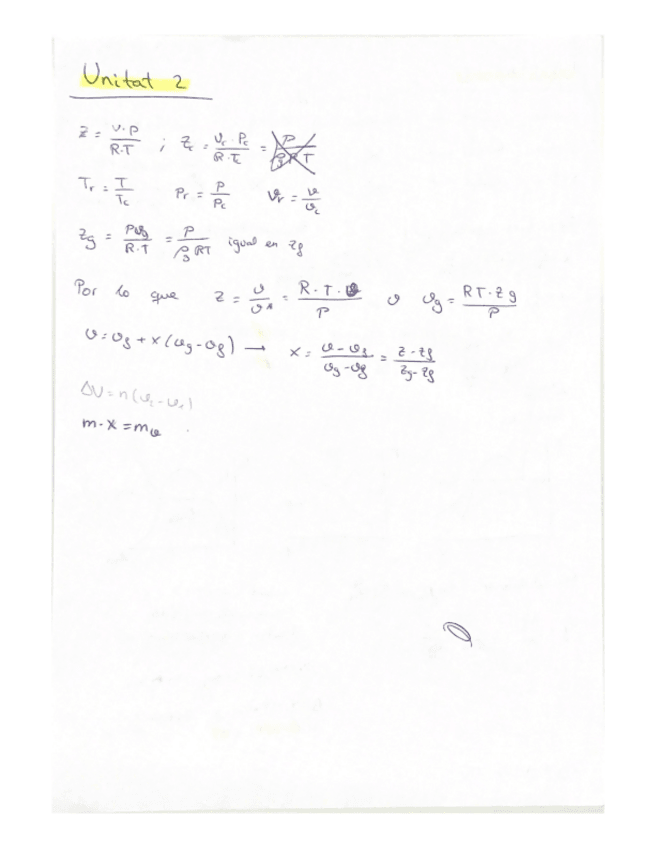 Unitat 2
Z = v·P / R·T ; Zc = vc·Pc / R·Tc = P / ρg R T
Tr = T / Tc Pr = P / Pc vr = v / vc
Zg = P vg / R·T = P / ρg RT igual en Zf
Por lo que Z = v / v* = R·T·v / P v vg = RT·Zg / P
v = vf + x(vg - vf) → x = v - vf / vg - vf = Z - Zf / Zg - Zf
m·x = mv